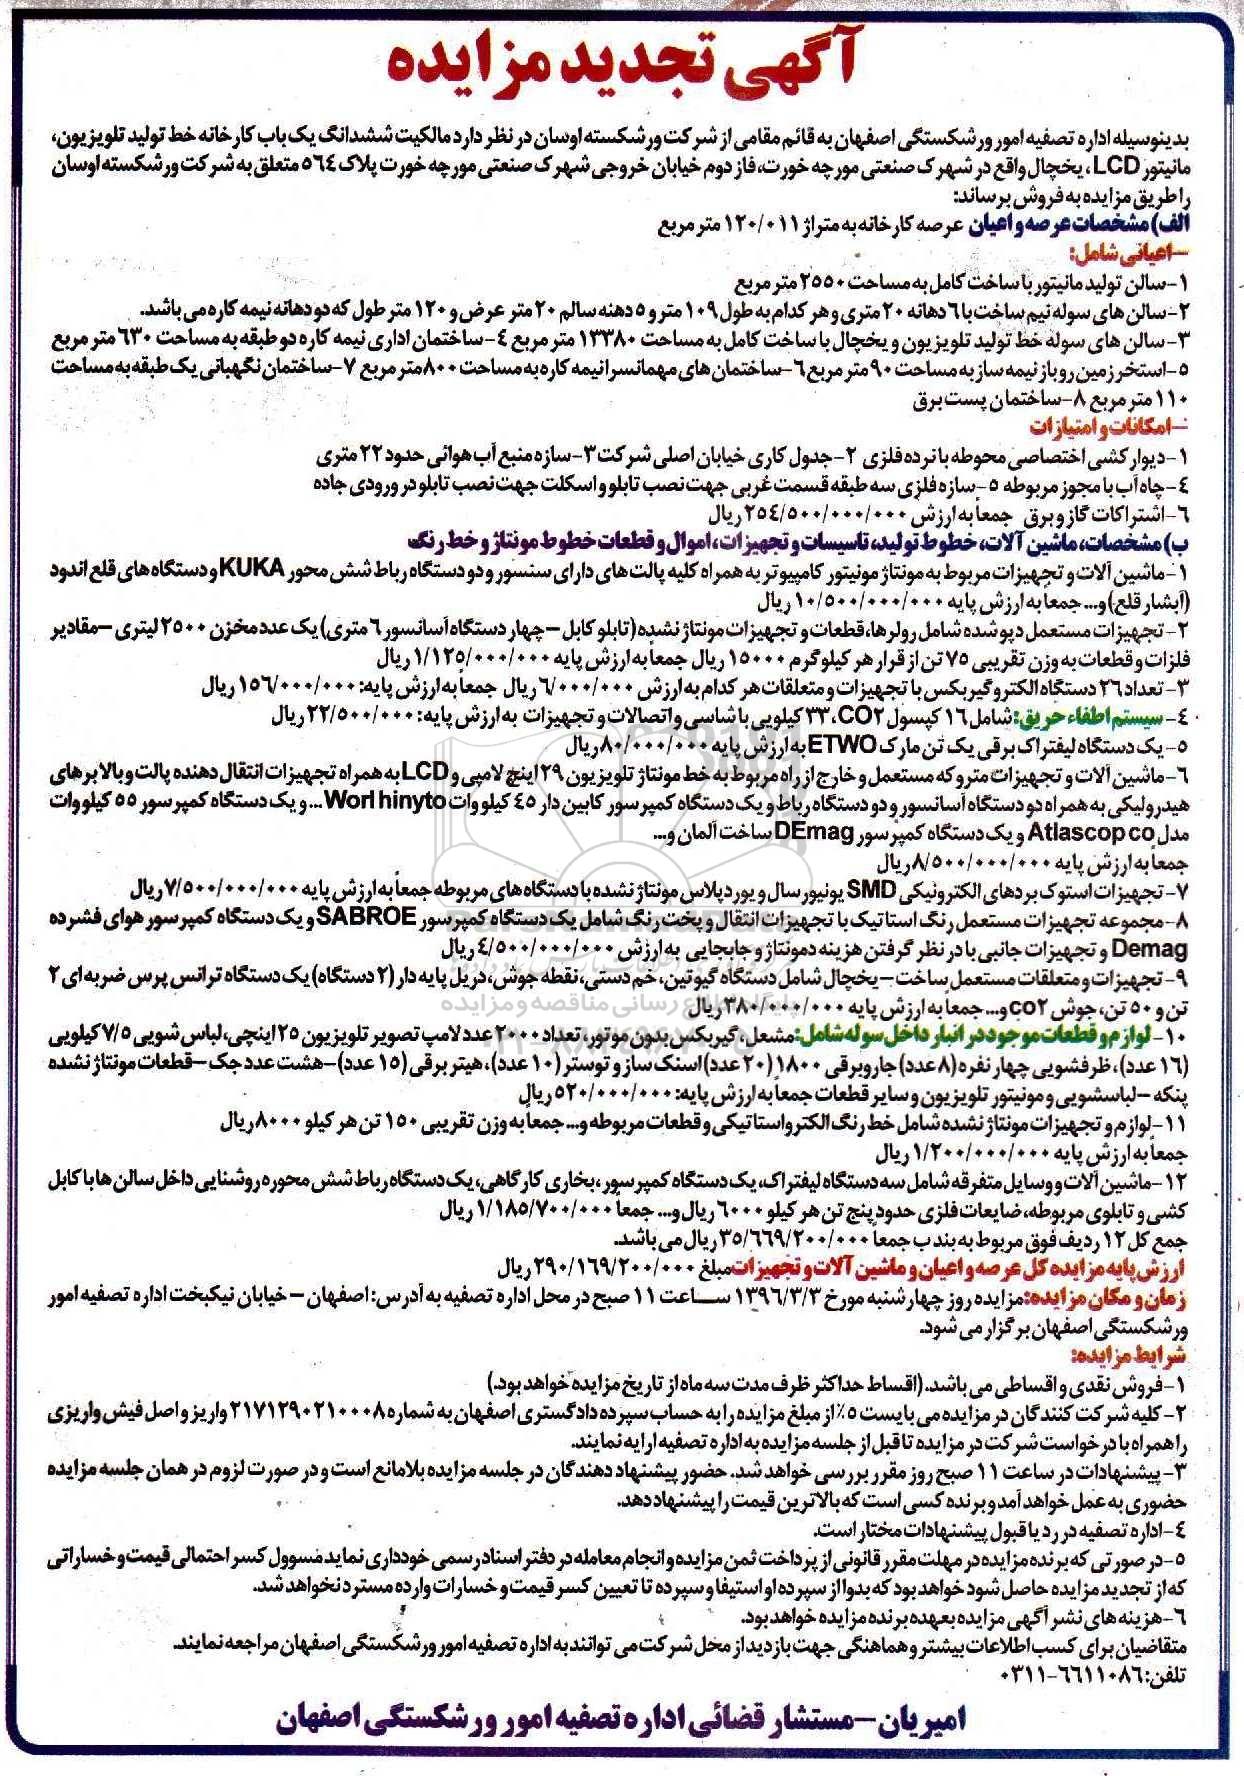 آگهی تجدید مزایده
بدینوسیله اداره تصفیه امور ورشکستگی اصفهان به قائم مقامی از شرکت ورشکسته اوسان در نظر دارد مالکیت ششدانگ یک باب کارخانه خط تولید تلویزیون،
مانیتور LCD، یخچال واقع در شهرک صنعتی مورچه خورت، فاز دوم خیابان خروجی شهرک صنعتی مورچه خورت پلاک ٥٦٤ متعلق به شرکت ورشکسته اوسان
را طریق مزایده به فروش برساند:
الف) مشخصات عرصه و اعیان عرصه کارخانه به متراژ ١٢٠/٠١١ متر مربع
-اعیانی شامل:
١-سالن تولید مانیتور با ساخت کامل به مساحت ٢٥٥٠ متر مربع
٢-سالن های سوله نیم ساخت با ٦ دهانه ٢٠ متری و هر کدام به طول ١٠٩ متر و ٥ دهنه سالم ٢٠ متر عرض و ١٢٠ متر طول که دو دهانه نیمه کاره می باشد.
٣-سالن های سوله خط تولید تلویزیون و یخچال با ساخت کامل به مساحت ١٣٣٨٠ متر مربع ٤-ساختمان اداری نیمه کاره دو طبقه به مساحت ٦٣٠ متر مربع
٥-استخر زمین روباز نیمه ساز به مساحت ٩٠ متر مربع ٦-ساختمان های مهمانسرا نیمه کاره به مساحت ٨٠٠ متر مربع ٧-ساختمان نگهبانی یک طبقه به مساحت
١١٠ متر مربع ٨-ساختمان پست برق
-امکانات و امتیازات
١-دیوار کشی اختصاصی محوطه با نرده فلزی ٢-جدول کاری خیابان اصلی شرکت ٣-سازه منبع آب هوائی حدود ٢٢ متری
٤-چاه آب با مجوز مربوطه ٥-سازه فلزی سه طبقه قسمت غربی جهت نصب تابلو و اسکلت جهت نصب تابلو در ورودی جاده
٦-اشتراکات گاز و برق جمعاً به ارزش ٢٥٤/٥٠٠/٠٠٠/٠٠٠ ریال
ب) مشخصات، ماشین آلات، خطوط تولید، تاسیسات و تجهیزات، اموال و قطعات خطوط مونتاژ و خط رنگ
١-ماشین آلات و تجهیزات مربوط به مونتاژ مونیتور کامپیوتر به همراه کلیه پالت های دارای سنسور و دو دستگاه رباط شش محور KUKA و دستگاه های قلع اندود
(آبشار قلع) و... جمعاً به ارزش پایه ١٠/٥٠٠/٠٠٠/٠٠٠ ریال
٢-تجهیزات مستعمل دپو شده شامل رولرها، قطعات و تجهیزات مونتاژ نشده (تابلو کابل-چهار دستگاه آسانسور ٦ متری) یک عدد مخزن ٢٥٠٠ لیتری-مقادیر
فلزات و قطعات به وزن تقریبی ٧٥ تن از قرار هر کیلوگرم ١٥٠٠٠ ریال جمعاً به ارزش پایه ١/١٢٥/٠٠٠/٠٠٠ ریال
٣-تعداد ٢٦ دستگاه الکترو گیربکس با تجهیزات و متعلقات هر کدام به ارزش ٦/٠٠٠/٠٠٠ ریال جمعاً به ارزش پایه: ١٥٦/٠٠٠/٠٠٠ ریال
٤-سیستم اطفاء حریق: شامل ١٦ کپسول CO٢، ٣٣ کیلویی با شاسی و اتصالات و تجهیزات به ارزش پایه: ٢٢/٥٠٠/٠٠٠ ریال
٥-یک دستگاه لیفتراک برقی یک تن مارک ETWO به ارزش پایه ٨٠/٠٠٠/٠٠٠ ریال
٦-ماشین آلات و تجهیزات متروکه مستعمل و خارج از راه مربوط به خط مونتاژ تلویزیون ٢٩ اینچ لامپی و LCD به همراه تجهیزات انتقال دهنده پالت و بالابرهای
هیدرولیکی به همراه دو دستگاه آسانسور و دو دستگاه رباط و یک دستگاه کمپرسور کابین دار ٤٥ کیلووات Worl hinyto ... و یک دستگاه کمپرسور ٥٥ کیلووات
مدل Atlascop co و یک دستگاه کمپرسور DEmag ساخت آلمان و...
جمعاً به ارزش پایه ٨/٥٠٠/٠٠٠/٠٠٠ ریال
٧-تجهیزات استوک بردهای الکترونیکی SMD یونیورسال و یورد پلاس مونتاژ نشده با دستگاه های مربوطه جمعاً به ارزش پایه ٧/٥٠٠/٠٠٠/٠٠٠ ریال
٨-مجموعه تجهیزات مستعمل رنگ استاتیک با تجهیزات انتقال و پخت رنگ شامل یک دستگاه کمپرسور SABROE و یک دستگاه کمپرسور هوای فشرده
Demag و تجهیزات جانبی با در نظر گرفتن هزینه دمونتاژ و جابجایی به ارزش ٤/٥٠٠/٠٠٠/٠٠٠ ریال
٩-تجهیزات و متعلقات مستعمل ساخت-یخچال شامل دستگاه گیوتین، خم دستی، نقطه جوش، دریل پایه دار (٢ دستگاه) یک دستگاه ترانس پرس ضربه ای ٢
تن و ٥٠ تن، جوش co٢ و... جمعاً به ارزش پایه ٣٨٠/٠٠٠/٠٠٠ ریال
١٠-لوازم و قطعات موجود در انبار داخل سوله شامل: مشعل، گیربکس بدون موتور، تعداد ٢٠٠٠ عدد لامپ تصویر تلویزیون ٢٥ اینچی، لباس شویی ٧/٥ کیلویی
(١٦ عدد)، ظرفشویی چهار نفره (٨ عدد) جاروبرقی ١٨٠٠ (٢٠ عدد) اسنک ساز و توستر (١٠ عدد)، هیتر برقی (١٥ عدد)-هشت عدد جک-قطعات مونتاژ نشده
پنکه-لباسشویی و مونیتور تلویزیون و سایر قطعات جمعاً به ارزش پایه: ٥٢٠/٠٠٠/٠٠٠ ریال
١١-لوازم و تجهیزات مونتاژ نشده شامل خط رنگ الکترواستاتیکی و قطعات مربوطه و... جمعاً به وزن تقریبی ١٥٠ تن هر کیلو ٨٠٠٠ ریال
جمعاً به ارزش پایه ١/٢٠٠/٠٠٠/٠٠٠ ریال
١٢-ماشین آلات و وسایل متفرقه شامل سه دستگاه لیفتراک، یک دستگاه کمپرسور، بخاری کارگاهی، یک دستگاه رباط شش محوره روشنایی داخل سالن ها با کابل
کشی و تابلوی مربوطه، ضایعات فلزی حدود پنج تن هر کیلو ٦٠٠٠ ریال و... جمعاً ١/١٨٥/٧٠٠/٠٠٠ ریال
جمع کل ١٢ ردیف فوق مربوط به بند ب جمعاً ٣٥/٦٦٩/٢٠٠/٠٠٠ ریال می باشد.
ارزش پایه مزایده کل عرصه و اعیان و ماشین آلات و تجهیزات مبلغ ٢٩٠/١٦٩/٢٠٠/٠٠٠ ریال
زمان و مکان مزایده: مزایده روز چهارشنبه مورخ ١٣٩٦/٣/٣ ساعت ١١ صبح در محل اداره تصفیه به آدرس: اصفهان - خیابان نیکبخت اداره تصفیه امور
ورشکستگی اصفهان برگزار می شود.
شرایط مزایده:
١-فروش نقدی و اقساطی می باشد. (اقساط حداکثر ظرف مدت سه ماه از تاریخ مزایده خواهد بود.)
٢-کلیه شرکت کنندگان در مزایده می بایست ٥٪ از مبلغ مزایده را به حساب سپرده دادگستری اصفهان به شماره ٢١٧١٢٩٠٢١٠٠٠٨ واریز و اصل فیش واریزی
را همراه با درخواست شرکت در مزایده تا قبل از جلسه مزایده به اداره تصفیه ارایه نمایند.
٣-پیشنهادات در ساعت ١١ صبح روز مقرر بررسی خواهد شد. حضور پیشنهاد دهندگان در جلسه مزایده بلامانع است و در صورت لزوم در همان جلسه مزایده
حضوری به عمل خواهد آمد و برنده کسی است که بالاترین قیمت را پیشنهاد دهد.
٤-اداره تصفیه در رد یا قبول پیشنهادات مختار است.
٥-در صورتی که برنده مزایده در مهلت مقرر قانونی از پرداخت ثمن مزایده و انجام معامله در دفتر اسناد رسمی خودداری نماید مسوول کسر احتمالی قیمت و خساراتی
که از تجدید مزایده حاصل شود خواهد بود که بدوا از سپرده او استیفا و سپرده تا تعیین کسر قیمت و خسارات وارده مسترد نخواهد شد.
٦-هزینه های نشر آگهی مزایده بعهده برنده مزایده خواهد بود.
متقاضیان برای کسب اطلاعات بیشتر و هماهنگی جهت بازدید از محل شرکت می توانند به اداره تصفیه امور ورشکستگی اصفهان مراجعه نمایند.
تلفن: ٦٦١١٠٨٦-٠٣١١
امیریان-مستشار قضائی اداره تصفیه امور ورشکستگی اصفهان
پایگاه اطلاع رسانی مناقصه و مزایده